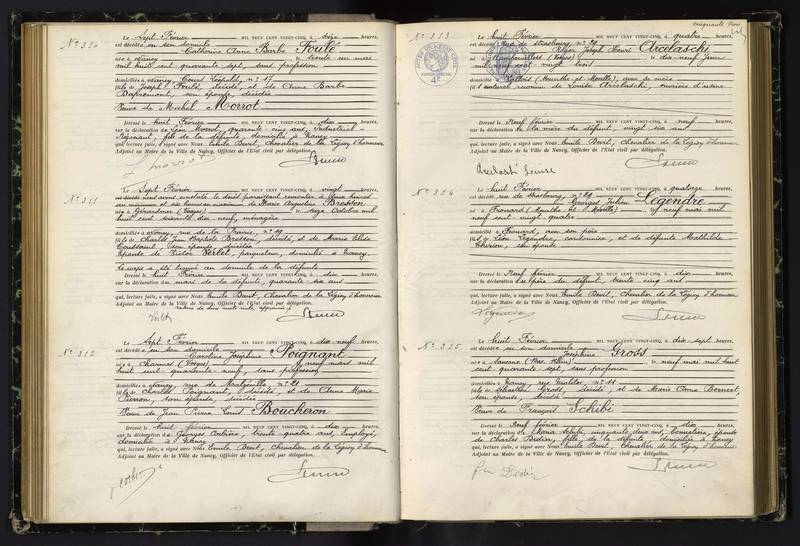 N° 310
Le Sept Février MIL NEUF CENT VINGT-CINQ, à seize heures,
est décédée en son domicile
Catherine Anne Barbe Foulé
née à Nancy le trente un mai
mil huit cent quarante sept, sans profession
domiciliée à Nancy, Cours Léopold, n° 17
fille de Joseph Foulé, décédé, et de Anne Barbe
son épouse, décédée
Veuve de Michel Morrot
Dressé le huit Février MIL NEUF CENT VINGT-CINQ, à dix heures,
sur la déclaration de Léon Morrot, quarante cinq ans, Industriel
fils de la défunte, domicilié à Nancy
qui, lecture faite, a signé avec Nous Emile Devit, Chevalier de la Légion d'honneur
Adjoint au Maire de la Ville de Nancy, Officier de l'Etat civil par délégation.
N° 311
Le Sept Février MIL NEUF CENT VINGT-CINQ, à vingt heures,
est décédée nous avons constaté le décès paraissant remonter à deux heures
de Marie Augustine Bresson
née à Gérardmer (Vosges) le seize Octobre mil
huit cent soixante dix neuf, ménagère
domiciliée à Nancy, rue de la Prairie, n° 19
fille de Charles Jean Baptiste Bresson, décédé, et de Marie Elise
Toussaint, son épouse, décédée
Epouse de Victor Perlet, parqueteur, domicilié à Nancy.
Le corps a été trouvé au domicile de la défunte
Dressé le huit Février MIL NEUF CENT VINGT-CINQ, à dix heures,
sur la déclaration du mari de la défunte, quarante six ans
qui, lecture faite, a signé avec Nous Emile Devit, Chevalier de la Légion d'honneur
Adjoint au Maire de la Ville de Nancy, Officier de l'Etat civil par délégation.
N° 312
Le Sept Février MIL NEUF CENT VINGT-CINQ, à dix neuf heures,
est décédée en son domicile
Caroline Joséphine Poignant
née à Charmes (Vosges) le neuf mars mil
huit cent quarante neuf, sans profession
domiciliée à Nancy, rue de n° 21
fille de Charles Poignant, décédé, et de Anne Marie
Pierson, son épouse, décédée
Veuve de Jean Pierre Louis Boucheron
Dressé le huit février MIL NEUF CENT VINGT-CINQ, à dix heures,
sur la déclaration de Georges trente quatre ans, Employé,
domicilié à Nancy
qui, lecture faite, a signé avec Nous Emile Devit, Chevalier de la Légion d'honneur
Adjoint au Maire de la Ville de Nancy, Officier de l'Etat civil par délégation.
N° 313
Le huit Février MIL NEUF CENT VINGT-CINQ, à quatre heures,
est décédé Rue de Strasbourg, n° 29
Roger Joseph Henri Arcelaschi
né à Rambervillers (Vosges) le dix neuf Juin
mil neuf cent vingt trois
domicilié à (Meurthe et Moselle), avec sa mère
fils naturel reconnu de Louise Arcelaschi, ouvrière d'usine
Dressé le Neuf Février MIL NEUF CENT VINGT-CINQ, à neuf heures,
sur la déclaration de la mère du défunt, vingt six ans
qui, lecture faite, a signé avec Nous Emile Devit, Chevalier de la Légion d'honneur
Adjoint au Maire de la Ville de Nancy, Officier de l'Etat civil par délégation.
Arcelaschi Louise
N° 314
Le huit Février MIL NEUF CENT VINGT-CINQ, à quatorze heures,
est décédé rue de Strasbourg, n° 29
Georges Julien Legendre
né à Frouard (Meurthe et Moselle) le neuf mai mil
neuf cent vingt quatre
domicilié à Frouard, avec son père
fils de Léon Legendre, cordonnier, et de défunte Mathilde
son épouse
Dressé le Neuf février MIL NEUF CENT VINGT-CINQ, à dix heures,
sur la déclaration du père du défunt, trente cinq ans
qui, lecture faite, a signé avec Nous Emile Devit, Chevalier de la Légion d'honneur
Adjoint au Maire de la Ville de Nancy, Officier de l'Etat civil par délégation.
Legendre
N° 315
Le huit Février MIL NEUF CENT VINGT-CINQ, à dix sept heures,
est décédée en son domicile
Joséphine Gross
née à Saverne (Bas Rhin) le neuf mai mil huit
cent quarante sept, sans profession
domiciliée à Nancy rue n° 11
fille de Sébastien Gross, décédé, et de Marie Anne Bernert,
son épouse, décédée
Veuve de François Schibi
Dressé le Neuf février MIL NEUF CENT VINGT-CINQ, à dix heures,
sur la déclaration de Maria Schibi, cinquante deux ans, épouse
de Charles Didier, fille de la défunte, domiciliée à Nancy
qui, lecture faite, a signé avec Nous Emile Devit, Chevalier de la Légion d'honneur
Adjoint au Maire de la Ville de Nancy, Officier de l'Etat civil par délégation.